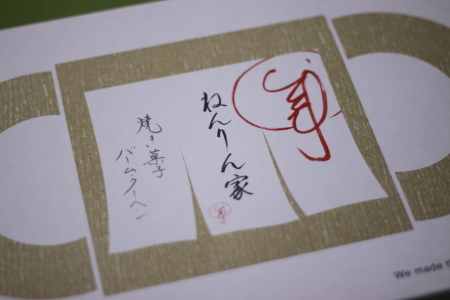 ねんりん家
焼き菓子
バームクーヘン
We made t